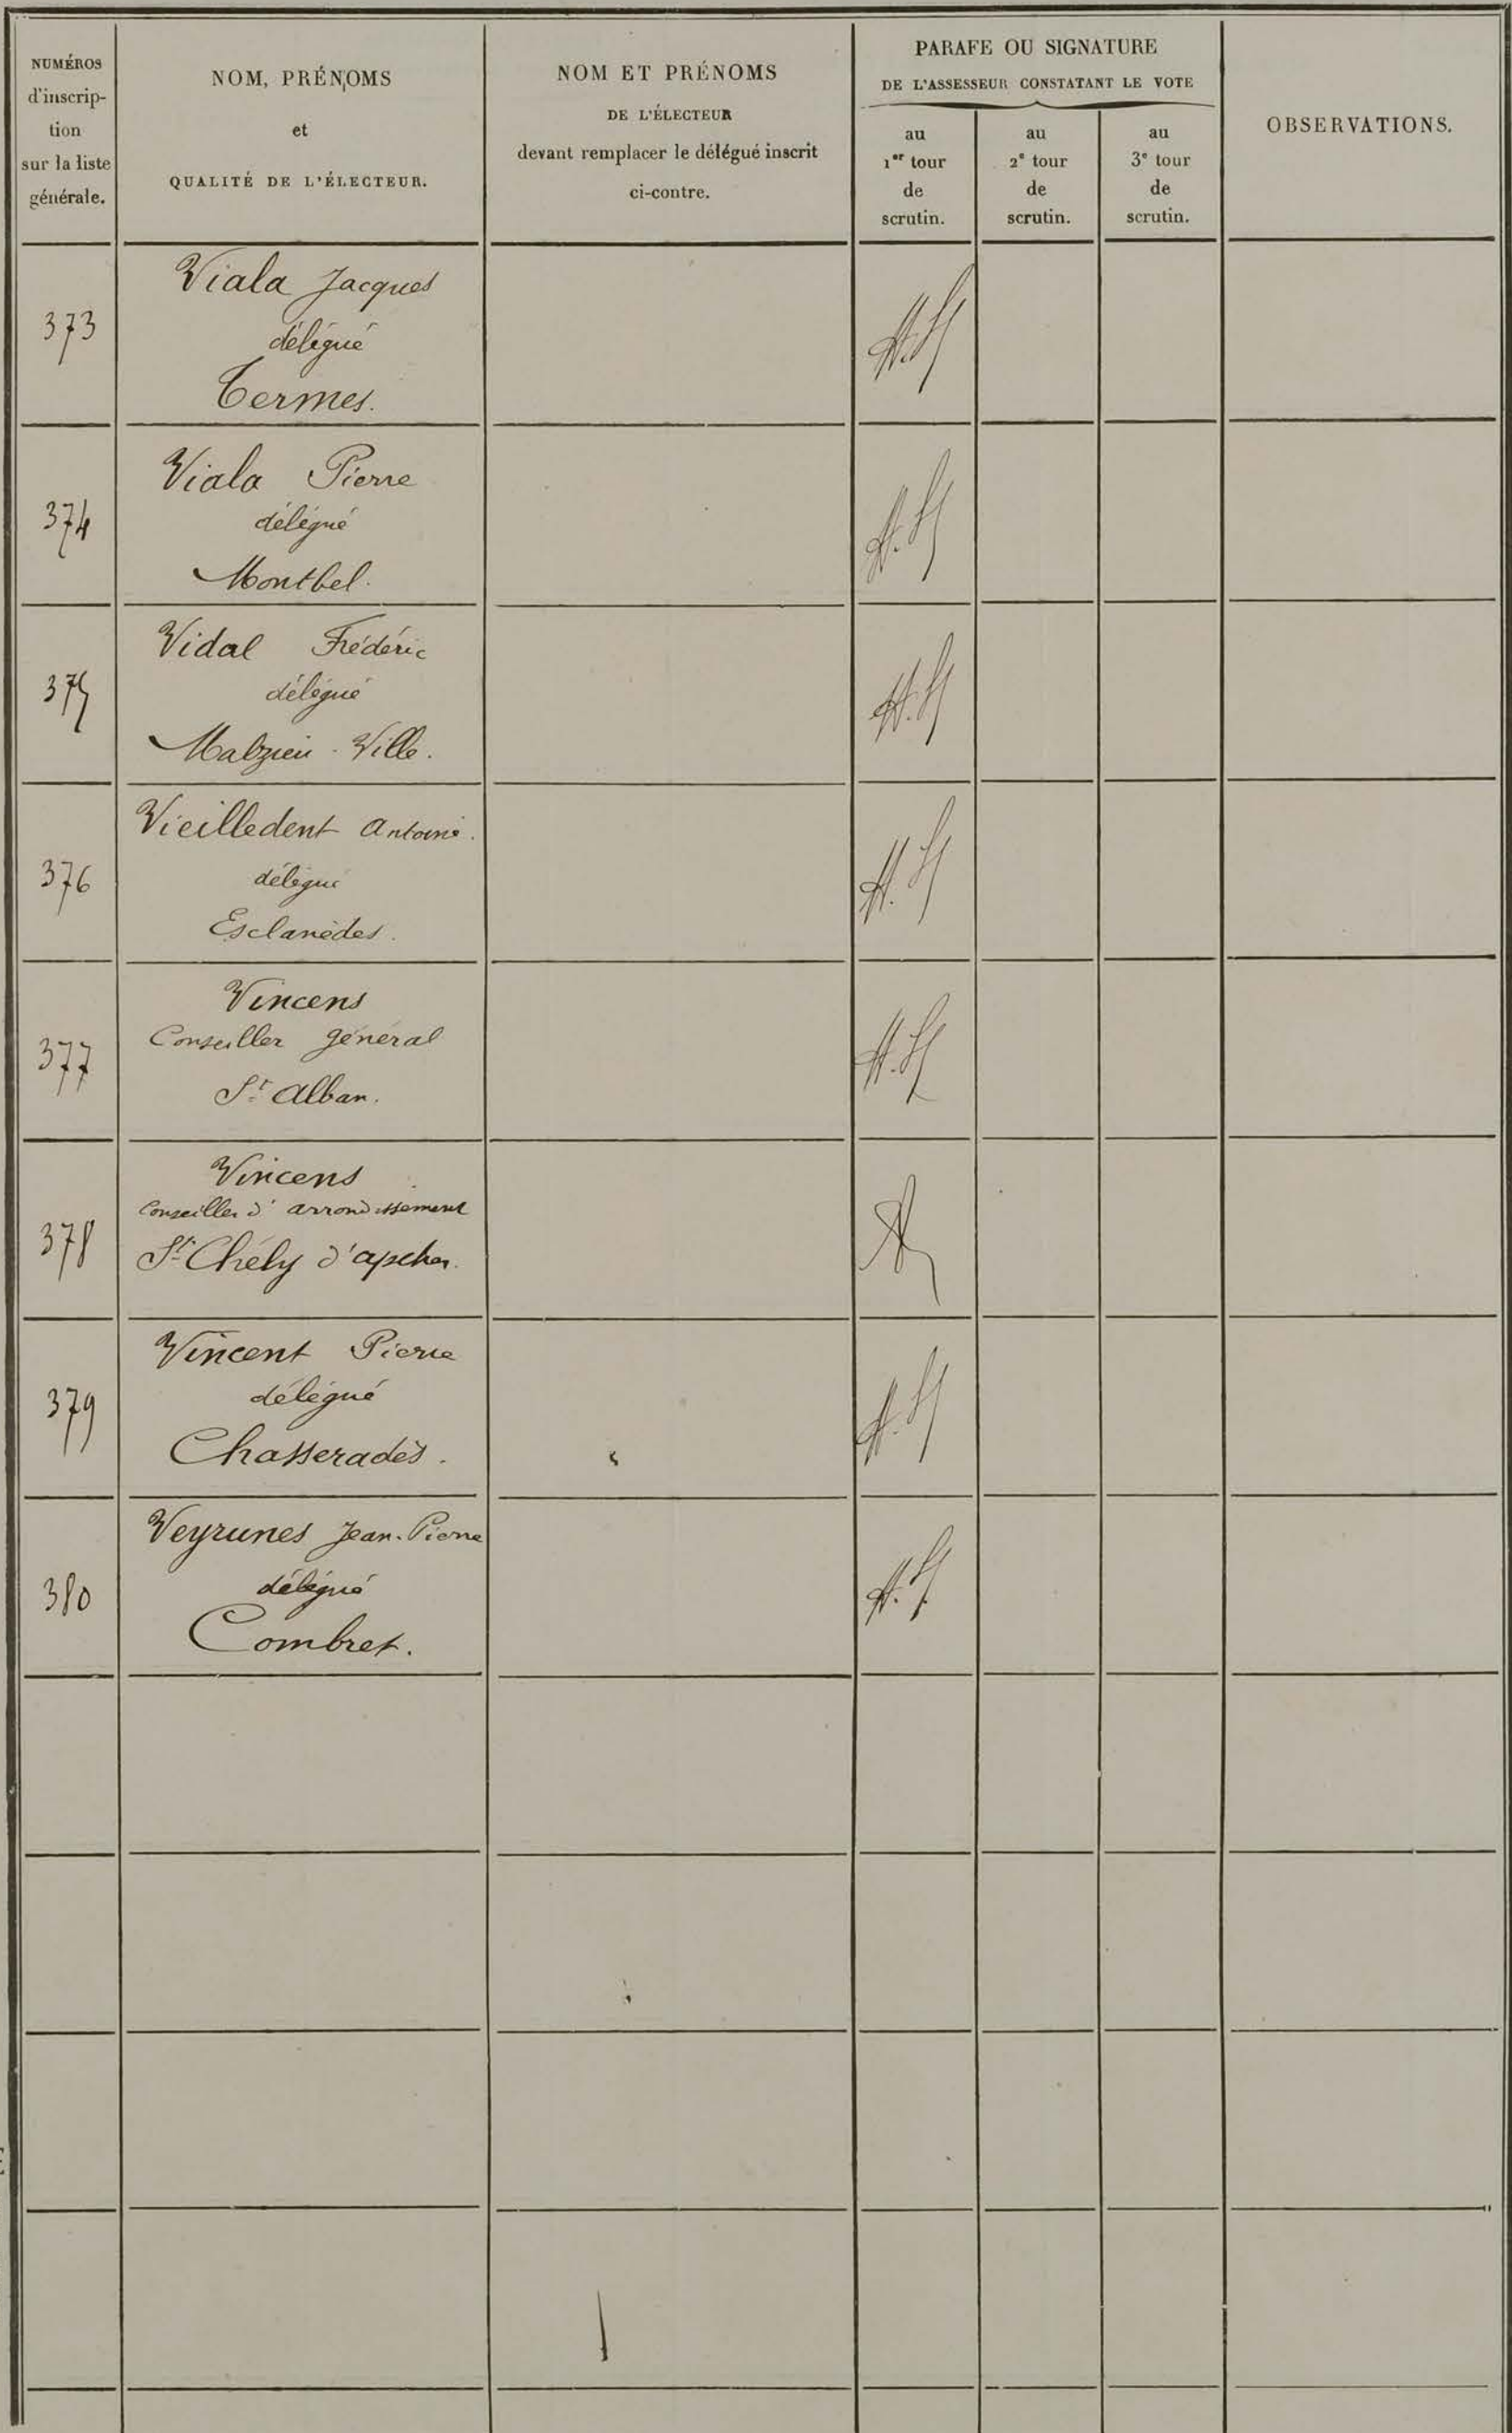 NUMÉROS
d'inscrip-
tion
sur la liste
générale.
NOM, PRÉNOMS
et
QUALITÉ DE L'ÉLECTEUR.
NOM ET PRÉNOMS
DE L'ÉLECTEUR
devant remplacer le délégué inscrit
ci-contre.
PARAFE OU SIGNATURE
DE L'ASSESSEUR CONSTATANT LE VOTE
au
1er tour
de
scrutin.
au
2e tour
de
scrutin.
au
3e tour
de
scrutin.
OBSERVATIONS.
373
Viala Jacques
délégué
Termes.
374
Viala Pierre
délégué
Montbel.
375
Vidal Frédéric
délégué
Malzieu-Ville.
376
Vieilledent Antoine.
délégué
Esclanèdes.
377
Vincens
Conseiller général
St Alban.
378
Vincens
Conseiller d'arrondissement
St Chély d'apcher.
379
Vincent Pierre
délégué
Chasseradès.
380
Veyrunes Jean-Pierre
délégué
Combret.